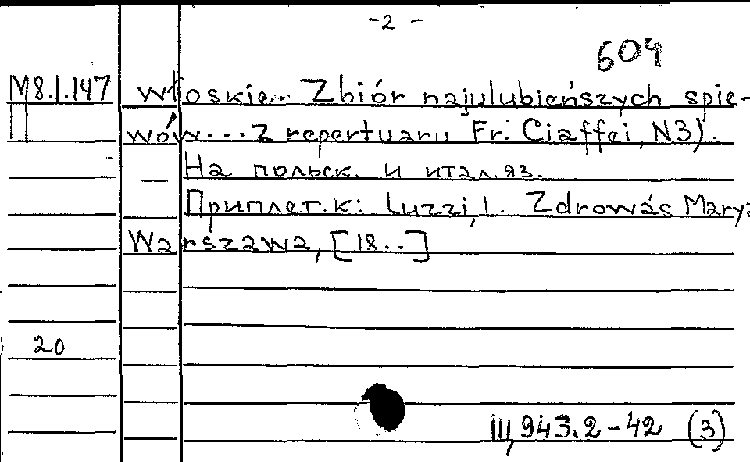 -2-
604
M8.I.147 włoskie... Zbiór najulubieńszych spie-
wów... z repertuaru Fr. Ciaffei, N3).
На польск. и итал. яз.
Приплет. к: Luzzi, I. Zdrowás Marya
Warszawa, [18..]
20
III, 943.2-42 (3)